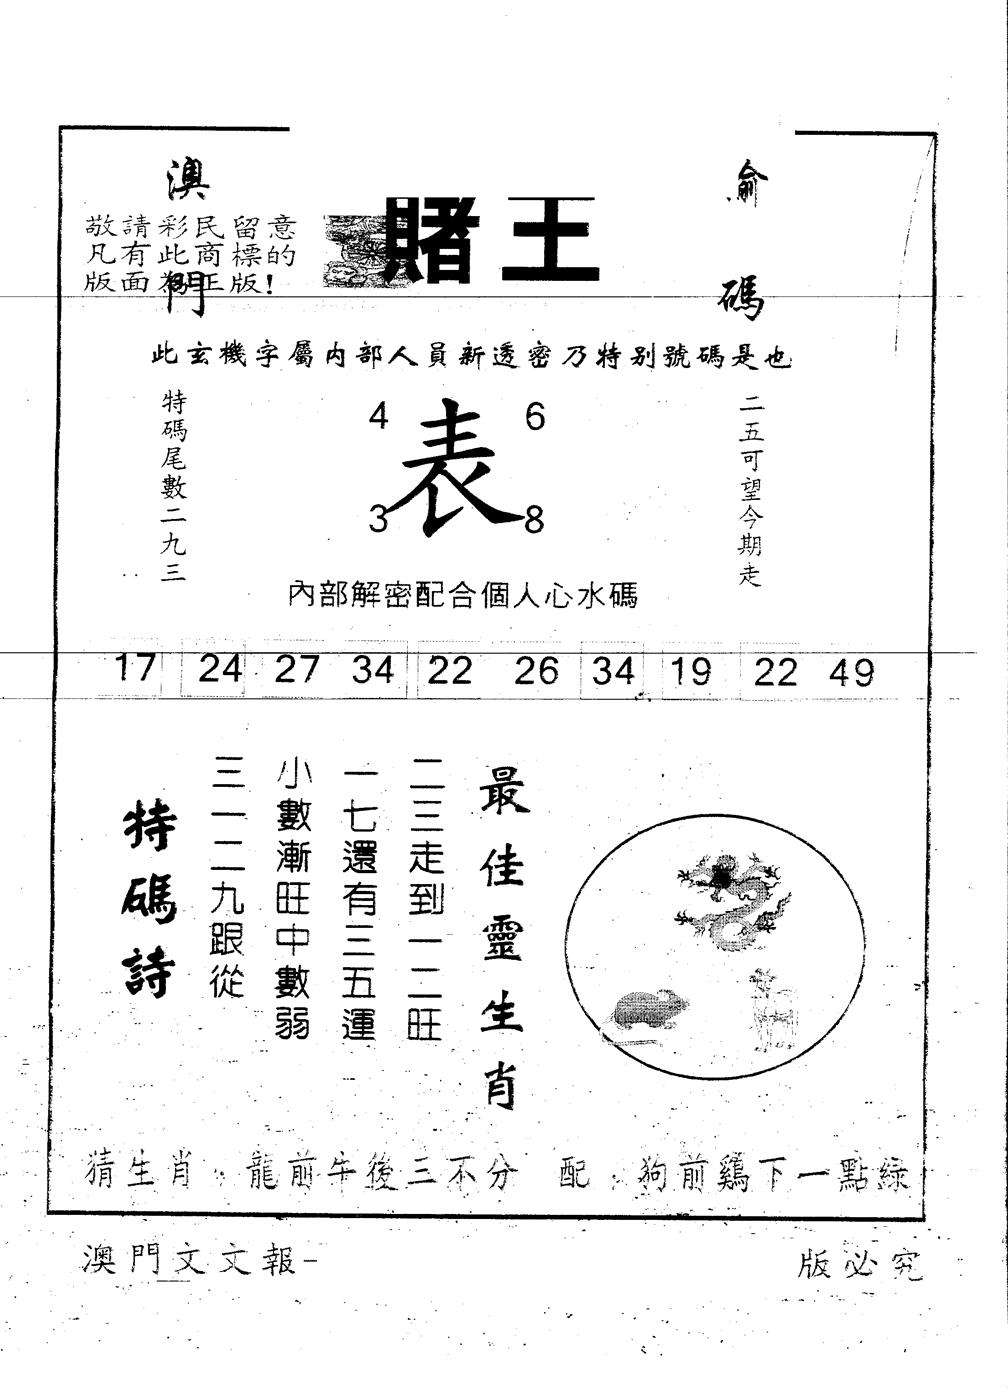 澳門
俞碼
賭王
敬請彩民留意
凡有此商標的
版面為正版!
此玄機字屬内部人員新透密乃特别號碼是也
特碼尾數二九三
4 6
表
3 8
二五可望今期走
內部解密配合個人心水碼
17 24 27 34 22 26 34 19 22 49
最佳靈生肖
二三走到一二旺
一七還有三五運
小數漸旺中數弱
三一二九跟從
特碼詩
猜生肖：龍前牛後三不分 配：狗前鷄下一點綠
澳門文文報-
版必究